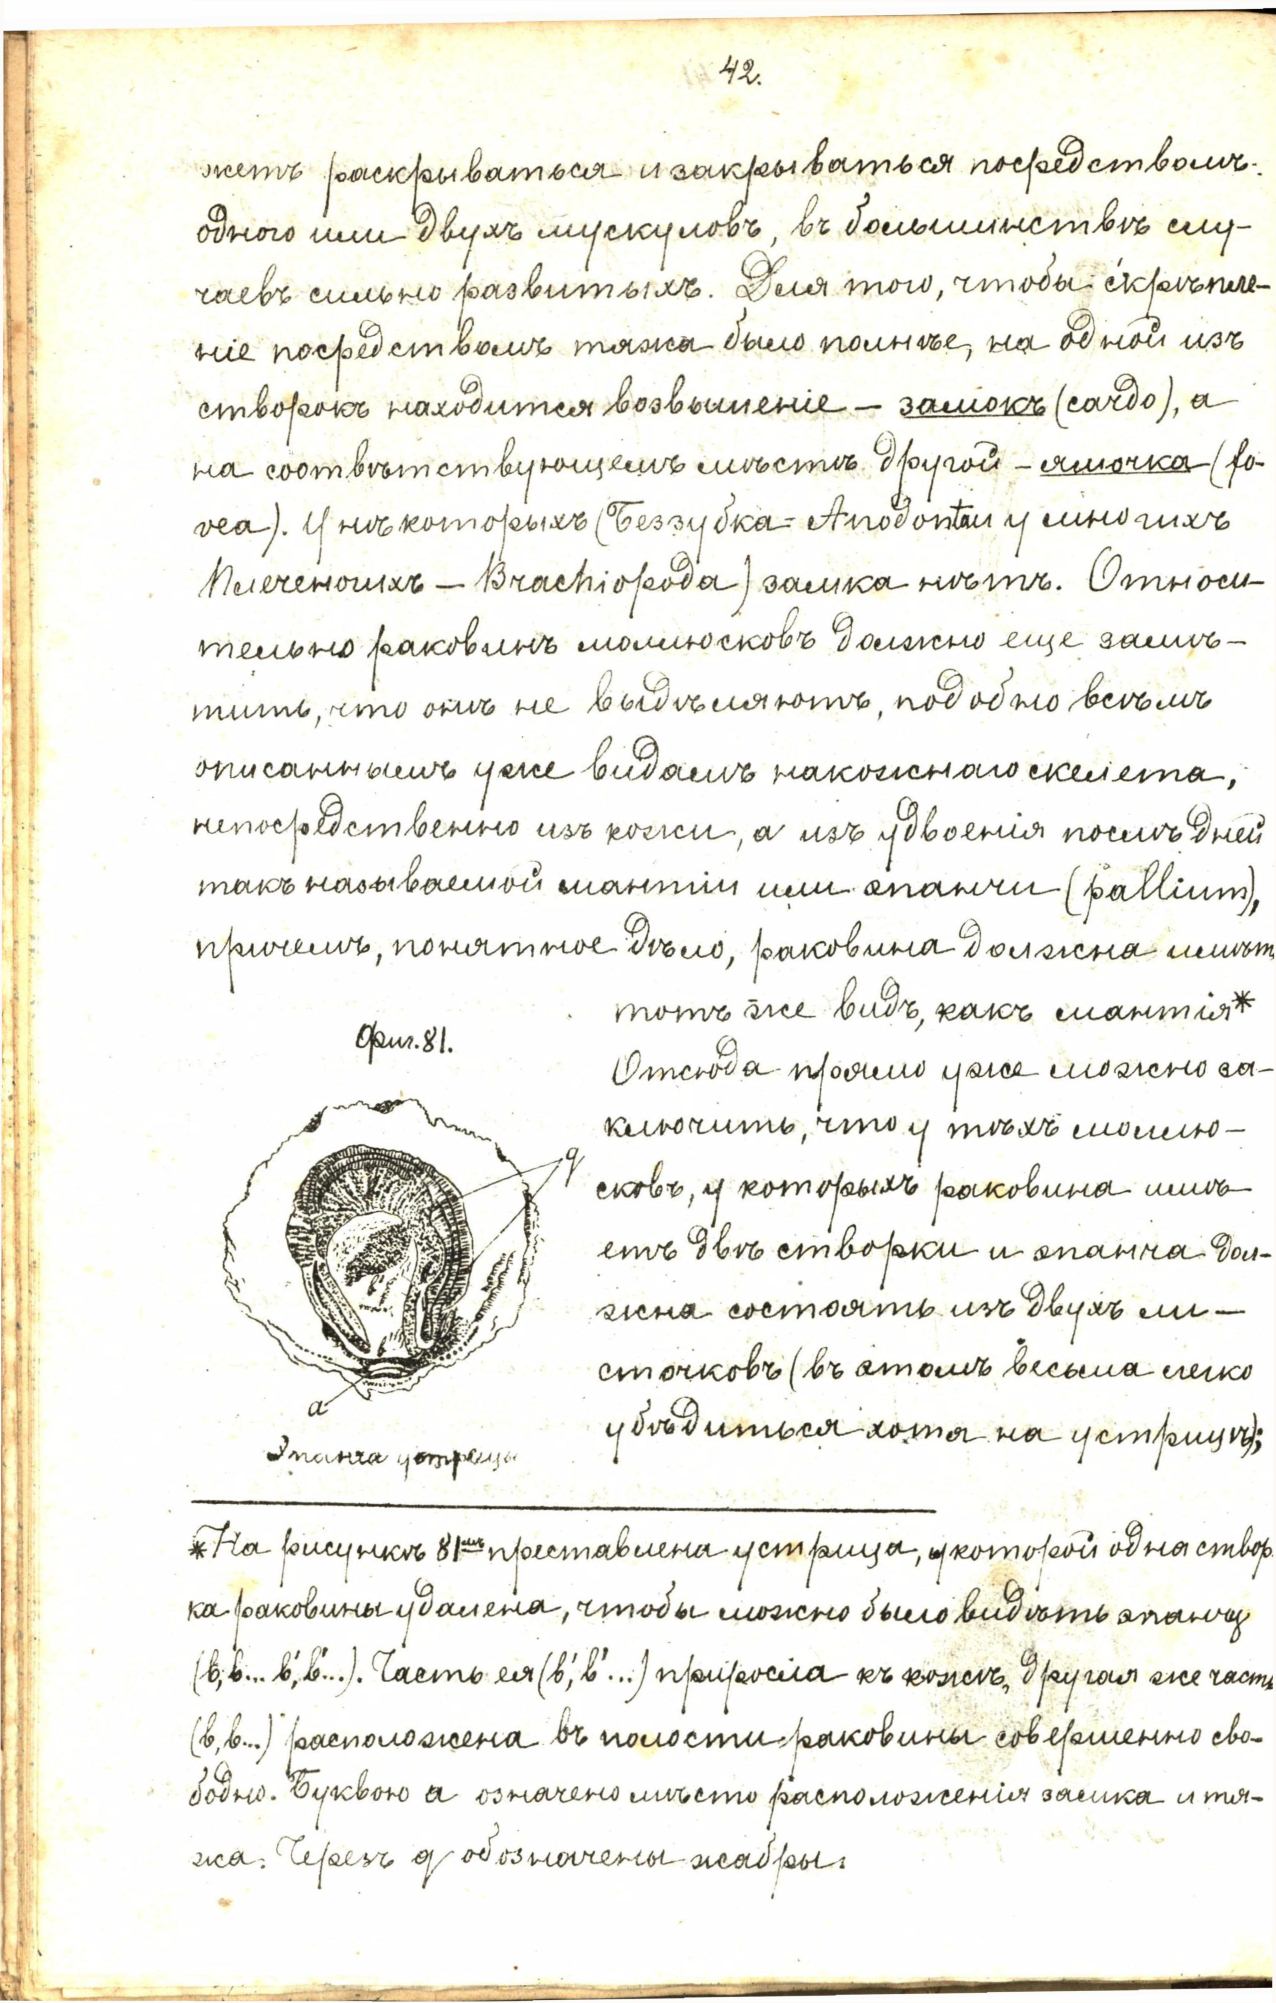 42.
жетъ раскрываться и закрываться посредствомъ
одного или двухъ мускуловъ, въ большинствѣ слу-
чаевъ сильно развитыхъ. Для того, чтобы скрѣпле-
ніе посредствомъ тяжа было полнѣе, на одной изъ
створокъ находится возвышеніе – замокъ (cardo), а
на соотвѣтствующемъ мѣстѣ другой – ямочка (fo-
vea). У нѣкоторыхъ (Беззубка = Anodonta и у многихъ
Плеченогихъ – Brachiopoda) замка нѣтъ. Относи-
тельно раковинъ моллюсковъ должно еще замѣ-
тить, что онѣ не выдѣляютъ, подобно всѣмъ
описаннымъ уже видамъ накожнаго скелета,
непосредственно изъ кожи, а изъ удвоенія послѣдней
такъ называемой мантіи или эпанчи (pallium),
причемъ, понятное дѣло, раковина должна имѣть
тотъ же видъ, какъ мантія*
Отсюда прямо уже можно за-
ключить, что у тѣхъ моллю-
сковъ, у которыхъ раковина имѣ
етъ двѣ створки и эпанча дол-
жна состоять изъ двухъ ли-
сточковъ (въ этомъ весьма легко
убѣдиться хотя на устрицѣ);
Фиг. 81.
q
a
Эпанча устрицы
*На рисункѣ 81мъ преставлена устрица, у которой одна створ
ка раковины удалена, чтобы можно было видѣть эпанчу
(b, b... b', b'...). Часть ея (b', b'...) приросла къ кожѣ, другая же часть
(b, b...) расположена въ полости раковины совершенно сво-
бодно. Буквою a означено мѣсто расположенія замка и тя-
жа. Черезъ q обозначены жабры.